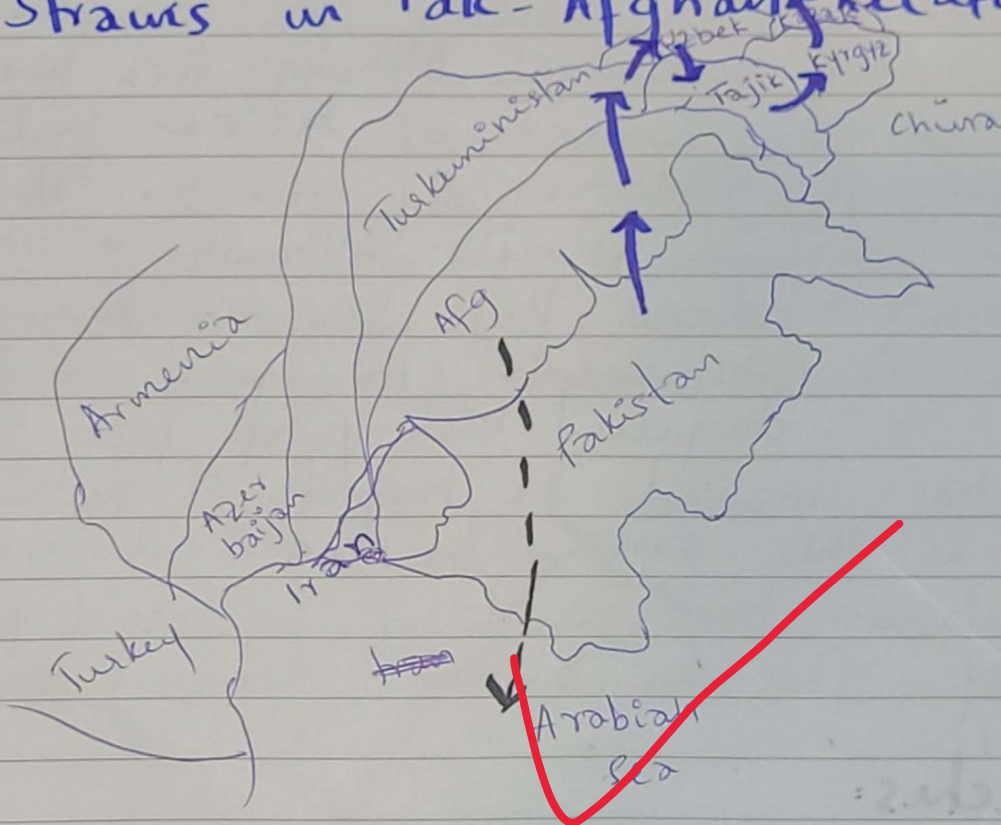 Straws in Pak - Afghan
Uzbek
Kyrgyz
Tajik
China
Turkministan
Afg
Armenia
Pakistan
Azer
baijan
Iran
Turkey
Arabian
Sea